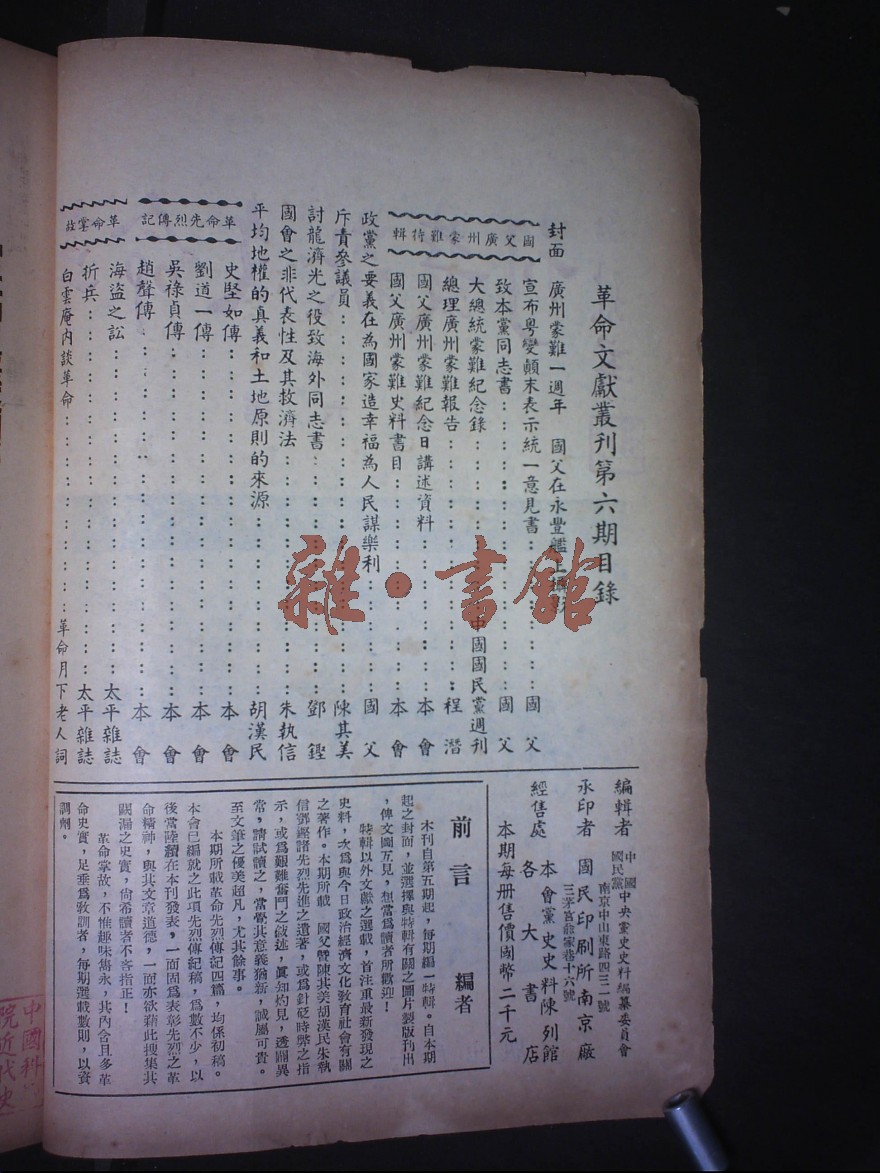 革命文獻叢刊第六期目錄
封面　廣州蒙難一週年　國父在永豐艦上攝影
國父廣州蒙難特輯
宣布粵變顛末表示統一意見書：：：：：：：國　父
致本黨同志書：：：：：：：：：：：：國　父
大總統蒙難紀念錄：：：：：：：中國國民黨週刊
總理廣州蒙難報告：：：：：：：：：：程　潛
國父廣州蒙難紀念日講述資料：：：：：：：本　會
國父廣州蒙難史料書目：：：：：：：：：本　會
政黨之要義在為國家造幸福為人民謀樂利：：：：國　父
斥責參議員：：：：：：：：：：：：：陳其美
討龍濟光之役致海外同志書：：：：：：：：鄧　鏗
國會之非代表性及其救濟法：：：：：：：：朱執信
平均地權的真義和土地原則的來源：：：：：：胡漢民
革命先烈傳記
史堅如傳：：：：：：：：：：：：：：本　會
劉道一傳：：：：：：：：：：：：：：本　會
吳祿貞傳：：：：：：：：：：：：：：本　會
趙聲傳：：：：：：：：：：：：：：：本　會
革命掌故
海盜之訟：：：：：：：：：：：：：太平雜誌
折兵：：：：：：：：：：：：：：：太平雜誌
白雲庵內談革命：：：：：：：：：革命月下老人詞
編輯者　中國國民黨中央黨史史料編纂委員會
南京中山東路四三一號
承印者　國民印刷所南京廠
三茅宮俞家巷十六號
經售處　本會黨史史料陳列館
各大書店
本期每册售價國幣二千元
前言
編者
本刊自第五期起，每期編一特輯。自本期
起之封面，並選擇與特輯有關之圖片製版刊出
，俾文圖互見，想當為讀者所歡迎！
特輯以外文獻之選載，首注重最新發現之
史料，次為與今日政治經濟文化教育社會有關
之著作。本期所載　國父暨陳其美胡漢民朱執
信鄧鏗諸先烈先進之遺著，或為針砭時弊之指
示，或為艱難奮鬥之敘述，眞知灼見，透闢異
常，請試讀之，當覺其意義猶新，誠屬可貴。
至文筆之優美超凡，尤其餘事。
本期所載革命先烈傳記四篇，均係初稿。
本會已編就之此項先烈傳記稿，為數不少，以
後當陸續在本刊發表，一面固為表彰先烈之革
命精神，與其文章道德，一面亦欲藉此搜集其
闕漏之史實，倘希讀者不吝指正！
革命掌故，不惟趣味雋永，其內含且多革
命史實，足垂為敎訓者，每期選載數則，以資
調劑。
雜·書館
中國科
院近代史